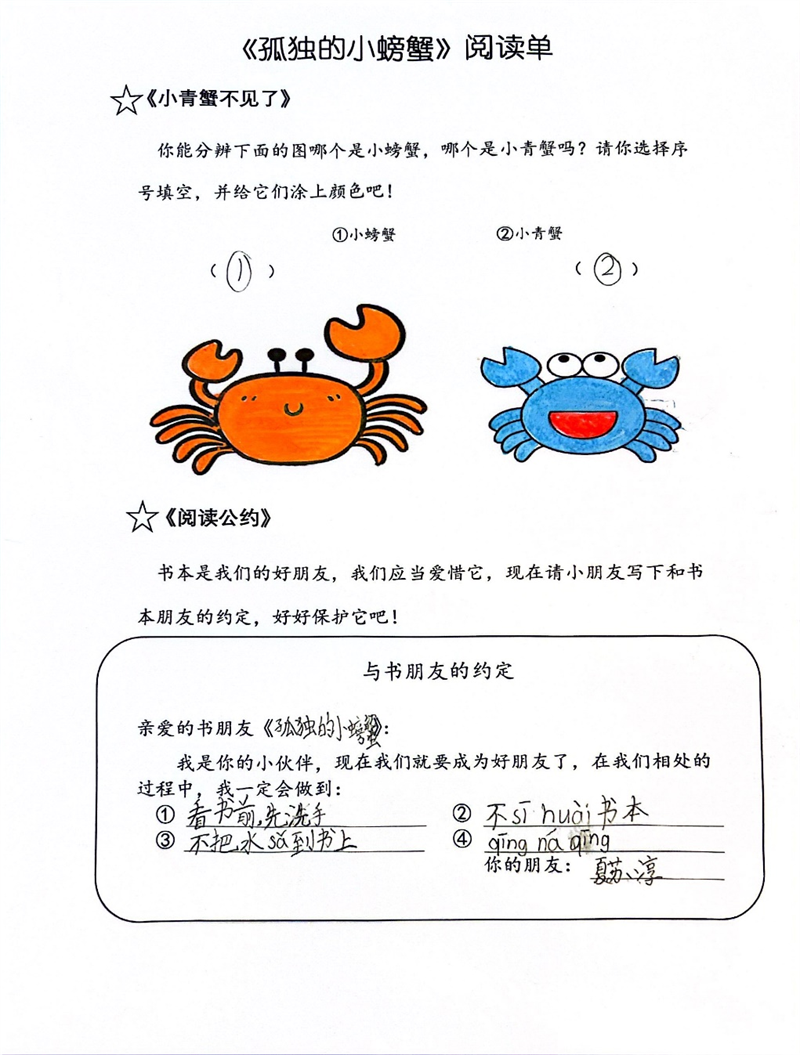 《孤独的小螃蟹》阅读单
《小青蟹不见了》
你能分辨下面的图哪个是小螃蟹，哪个是小青蟹吗？请你选择序
号填空，并给它们涂上颜色吧！
①小螃蟹 ②小青蟹
（①） （②）
《阅读公约》
书本是我们的好朋友，我们应当爱惜它，现在请小朋友写下和书
本朋友的约定，好好保护它吧！
与书朋友的约定
亲爱的书朋友《孤独的小螃蟹》：
我是你的小伙伴，现在我们就要成为好朋友了，在我们相处的
过程中，我一定会做到：
① 看书前，先洗手 ② 不sī huài书本
③ 不把水sǎ到书上 ④ qīng ná qīng
你的朋友：夏苏淳